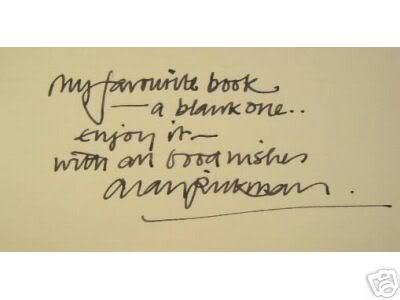 My favourite book
— a blank one..
enjoy it —
with all good wishes
Alan Rickman.